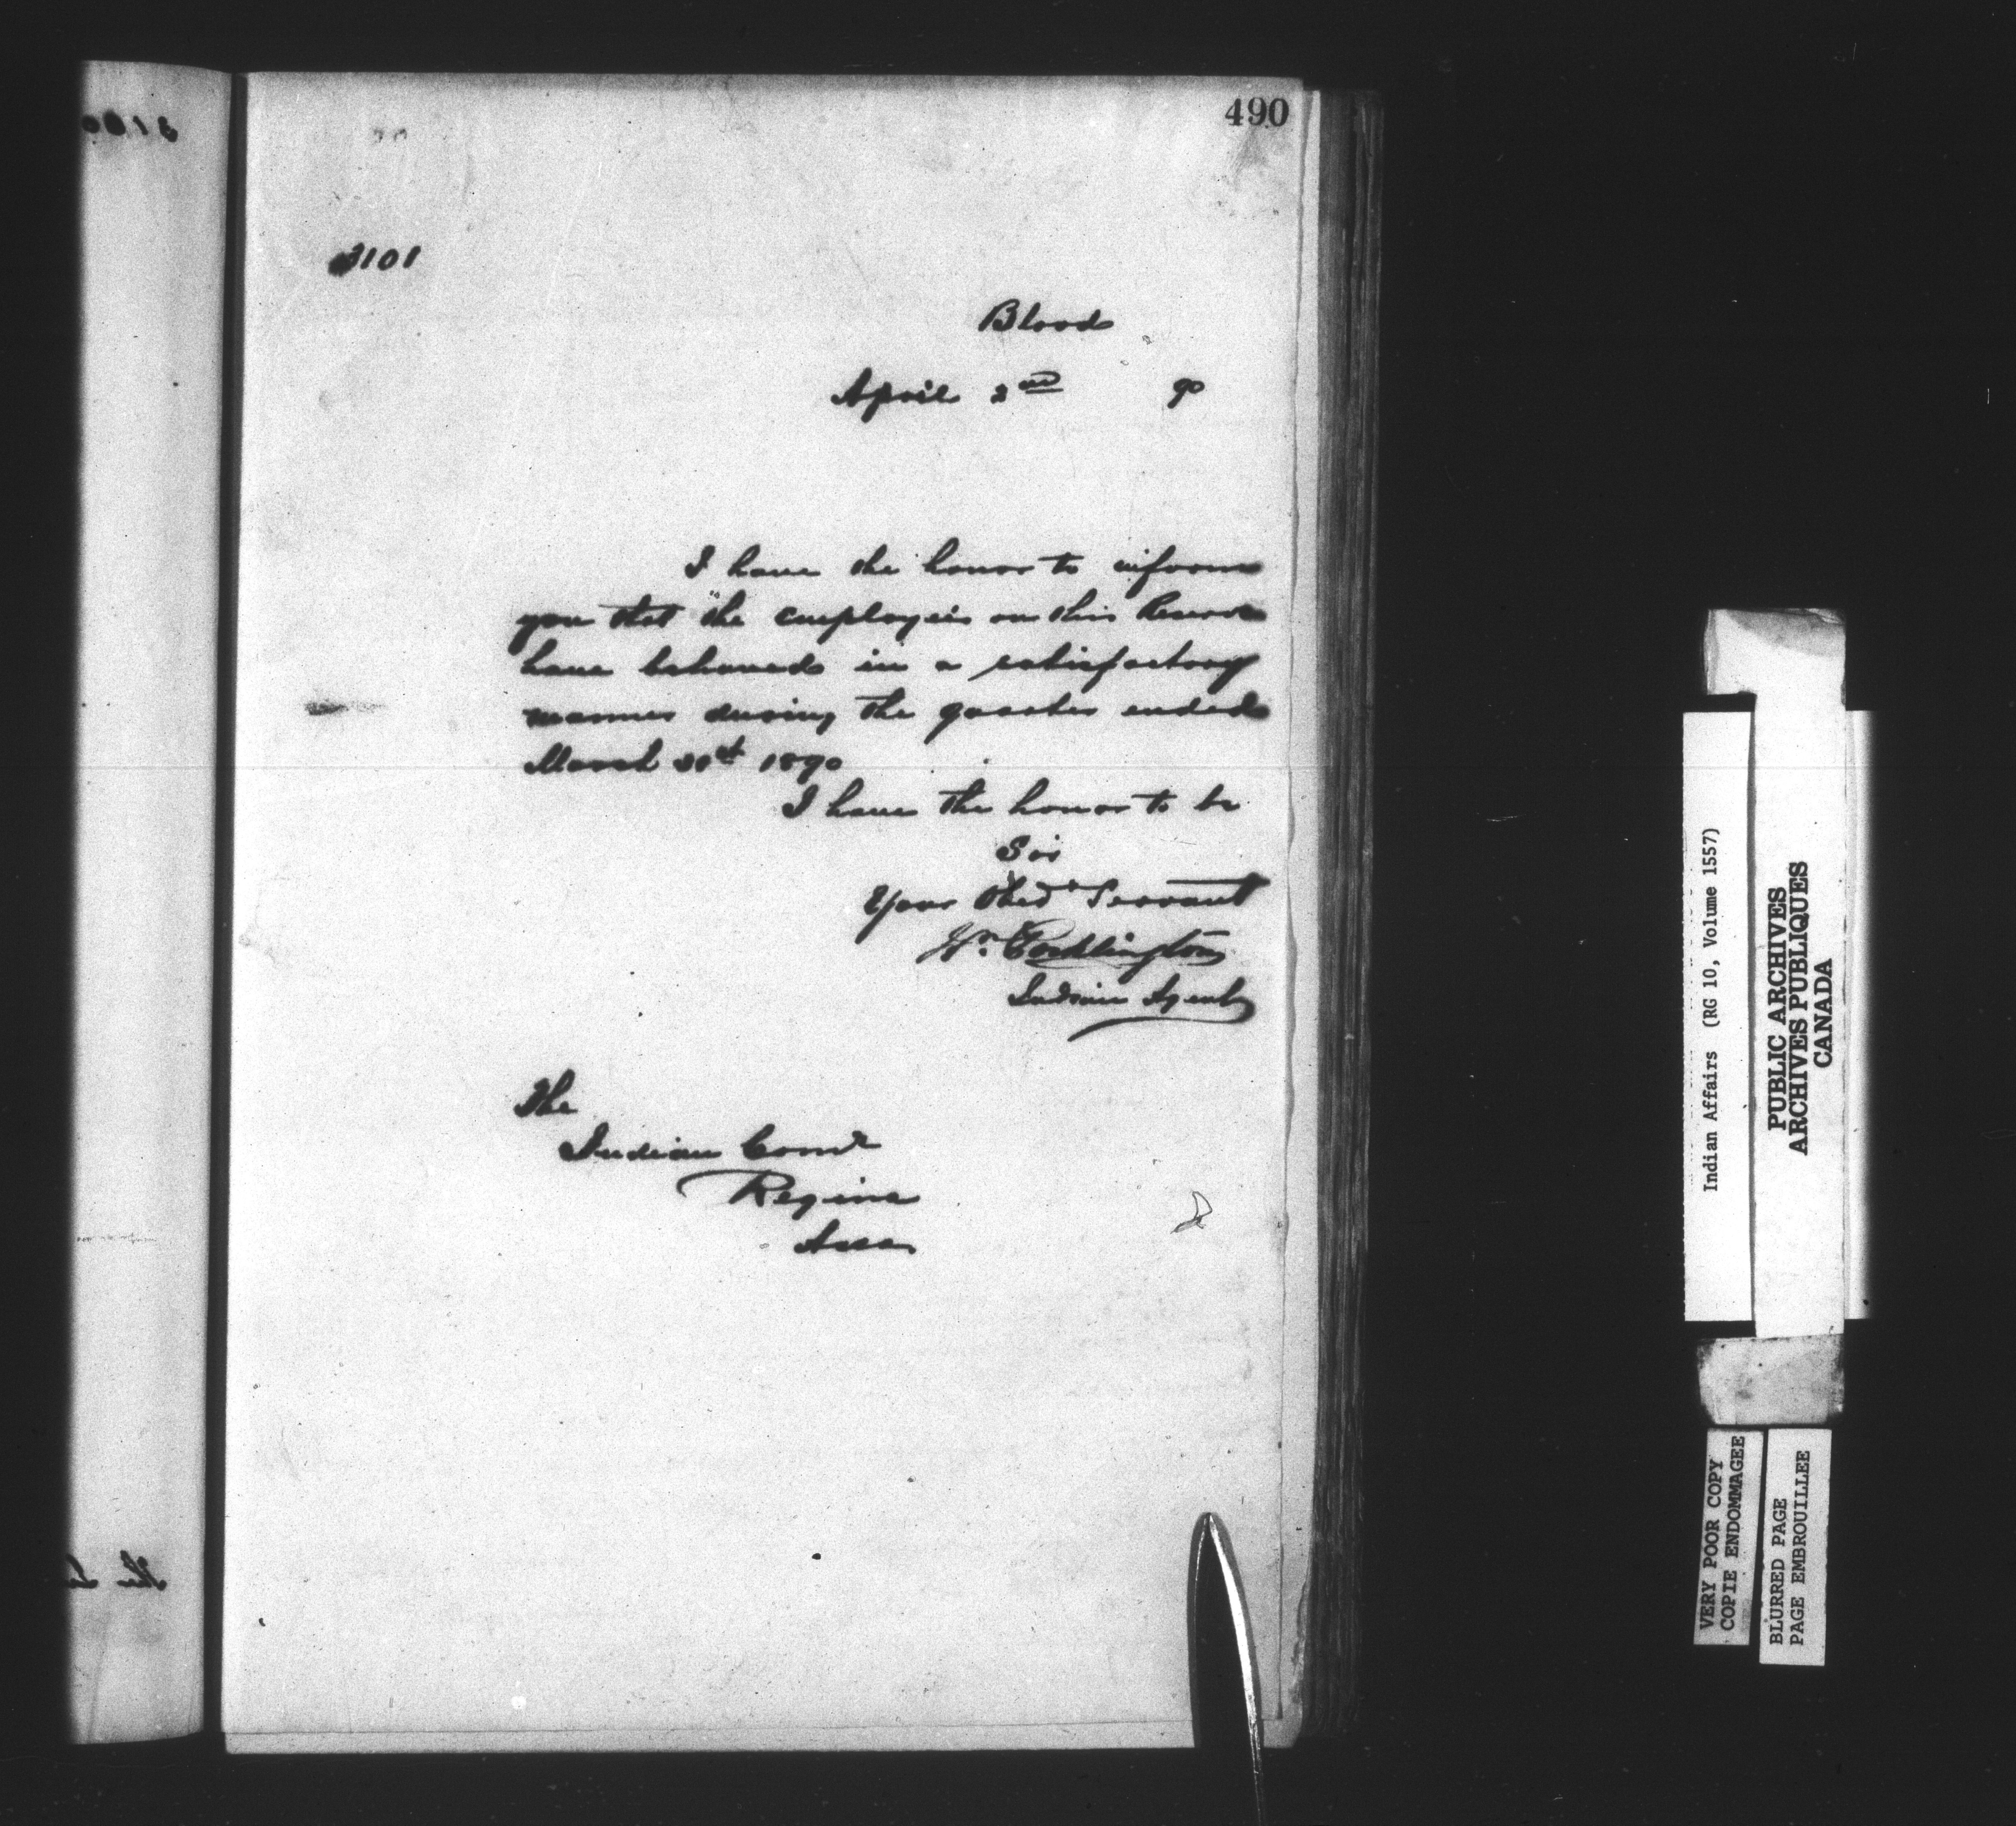 490
3101
Blood
April 2nd 90
I have the honor to inform
you that the employees on this Reserve
have behaved in a satisfactory
manner during the quarter ended
March 31st 1890
I have the honor to be
Sir
Your Obedt Servant
Wm. Pocklington
Indian Agent
The
Indian Comr
Regina
Assa
Indian Affairs (RG 10, Volume 1557)
PUBLIC ARCHIVES
ARCHIVES PUBLIQUES
CANADA
VERY POOR COPY
COPIE ENDOMMAGEE
BLURRED PAGE
PAGE EMBROUILLEE